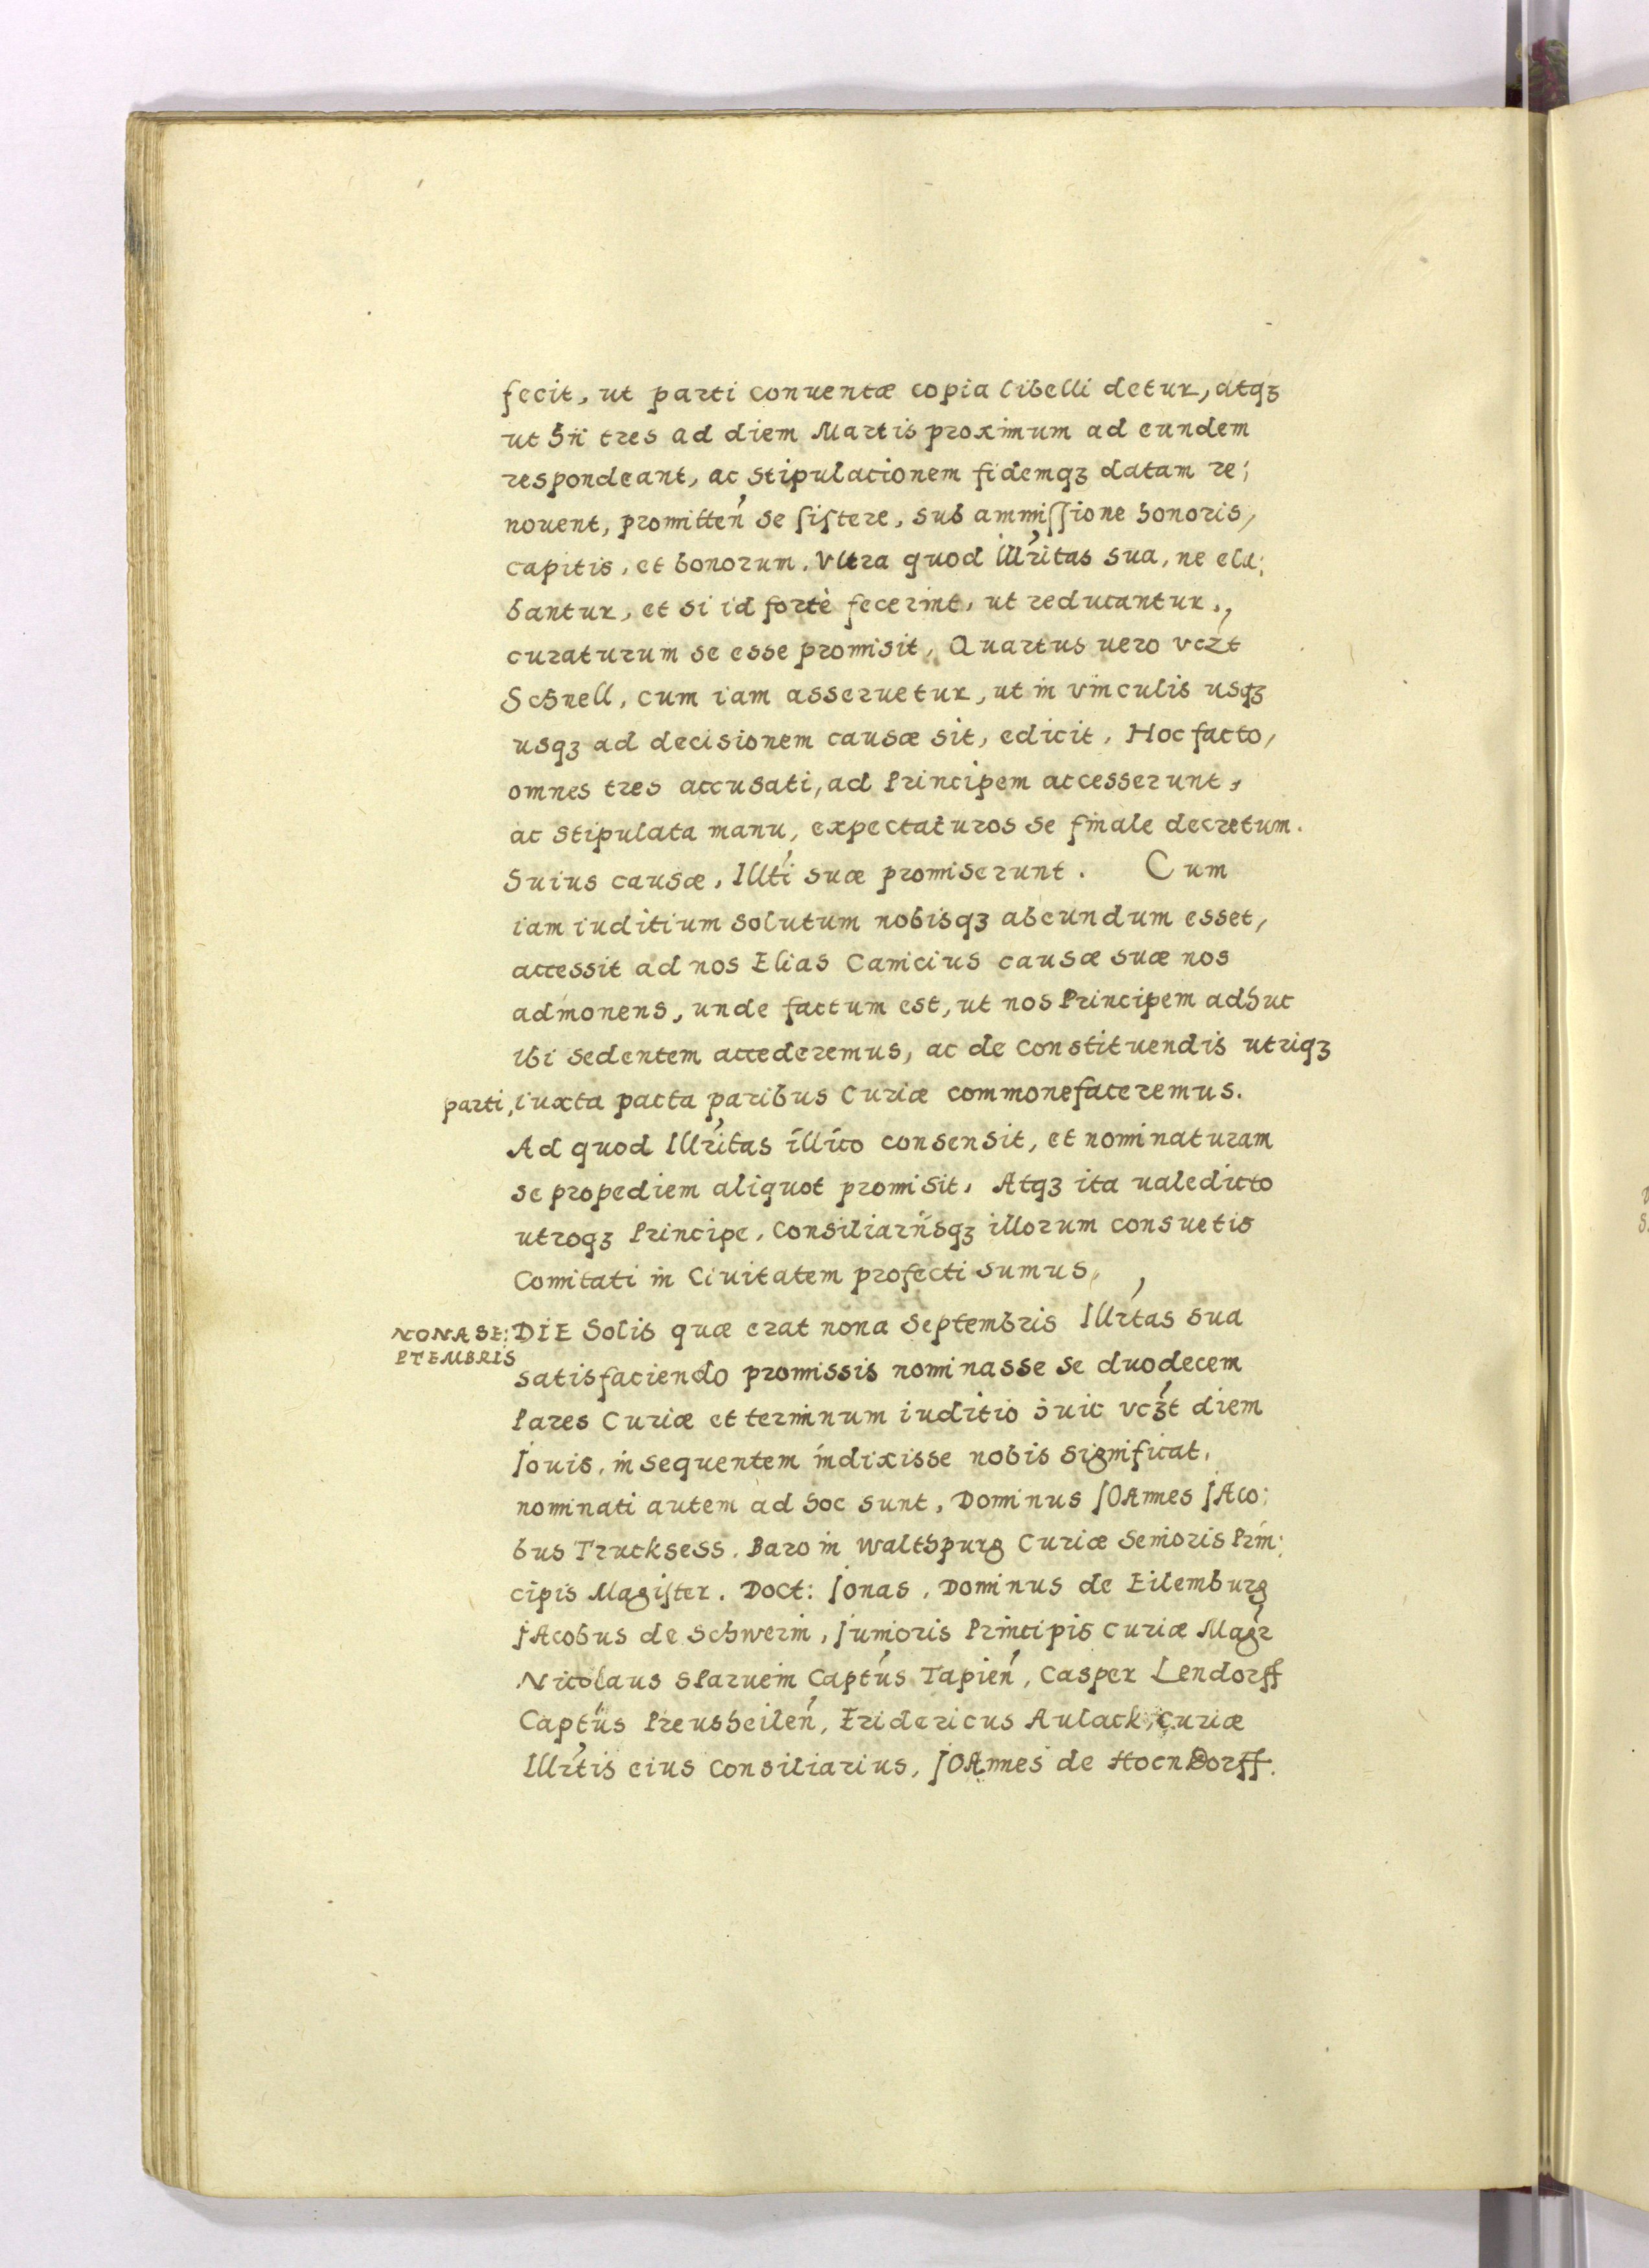 fecit, ut parti conuentæ copia libelli detur, atqꝫ
ut hii tres ad diem Martis proximum ad eundem
respondeant, ac stipulationem fidemqꝫ datam re;
nouent, promitten̓ se ſiſtere, sub ammiſſione honoris,
capitis, et bonorum. Vltra quod Illr̓itas sua, ne ela;
bantur, et si id fortè fecerint, ut reducantur.,
curaturum se esse promisit, Quartus uero vcꝫt
Schnell, cum iam asseruetur, ut in vinculis usqꝫ
usqꝫ ad decisionem causæ sit, edicit, Hoc facto,
omnes tres accusati, ad Principem accesserunt,
ac stipulata manu, expectaturos se finale decretum.
huius causæ, Illt̓i suæ promiserunt. Cum
iam iuditium solutum nobisqꝫ abeundum esset,
accessit ad nos Elias Canicius causæ suæ nos
admonens, unde factum est, ut nos Principem adhuc
ibi sedentem accederemus, ac de constituendis utriqꝫ
parti, iuxta pacta paribus Curiæ commonefaceremus.
Ad quod Illr̓itas illico consensit, et nominaturam
se propediem aliquot promisit, Atqꝫ ita ualedicto
utroqꝫ Principe, Consiliariisqꝫ illorum consuetis
Comitati in Ciuitatem profecti sumus,
NONA SE;
PTEMBRIS
DIE Solis quæ erat nona Septembris Illr̓tas sua
satisfaciendo promissis nominasse se duodecem
Pares Curiæ et terminum iuditio huic vcꝫt diem
Jouis, insequentem indixisse nobis significat,
nominati autem ad hoc sunt, Dominus JOAnnes JAco;
bus Trucksess. Baro in Walthpurg Curiæ Senioris Prin;
cipis Magiſter. Doct: Jonas, Dominus de Eilemburg
JAcobus de Schwerin, Junioris Principis Curiæ Magr̓
Nicolaus Sparuein Capt̓us Tapien̓, Casper Lendorff
Capt̓us Preusheilen̓, Fridericus Aulack, Curiæ
Illr̓tis eius Consiliarius, JOAnnes de HoenDorff.